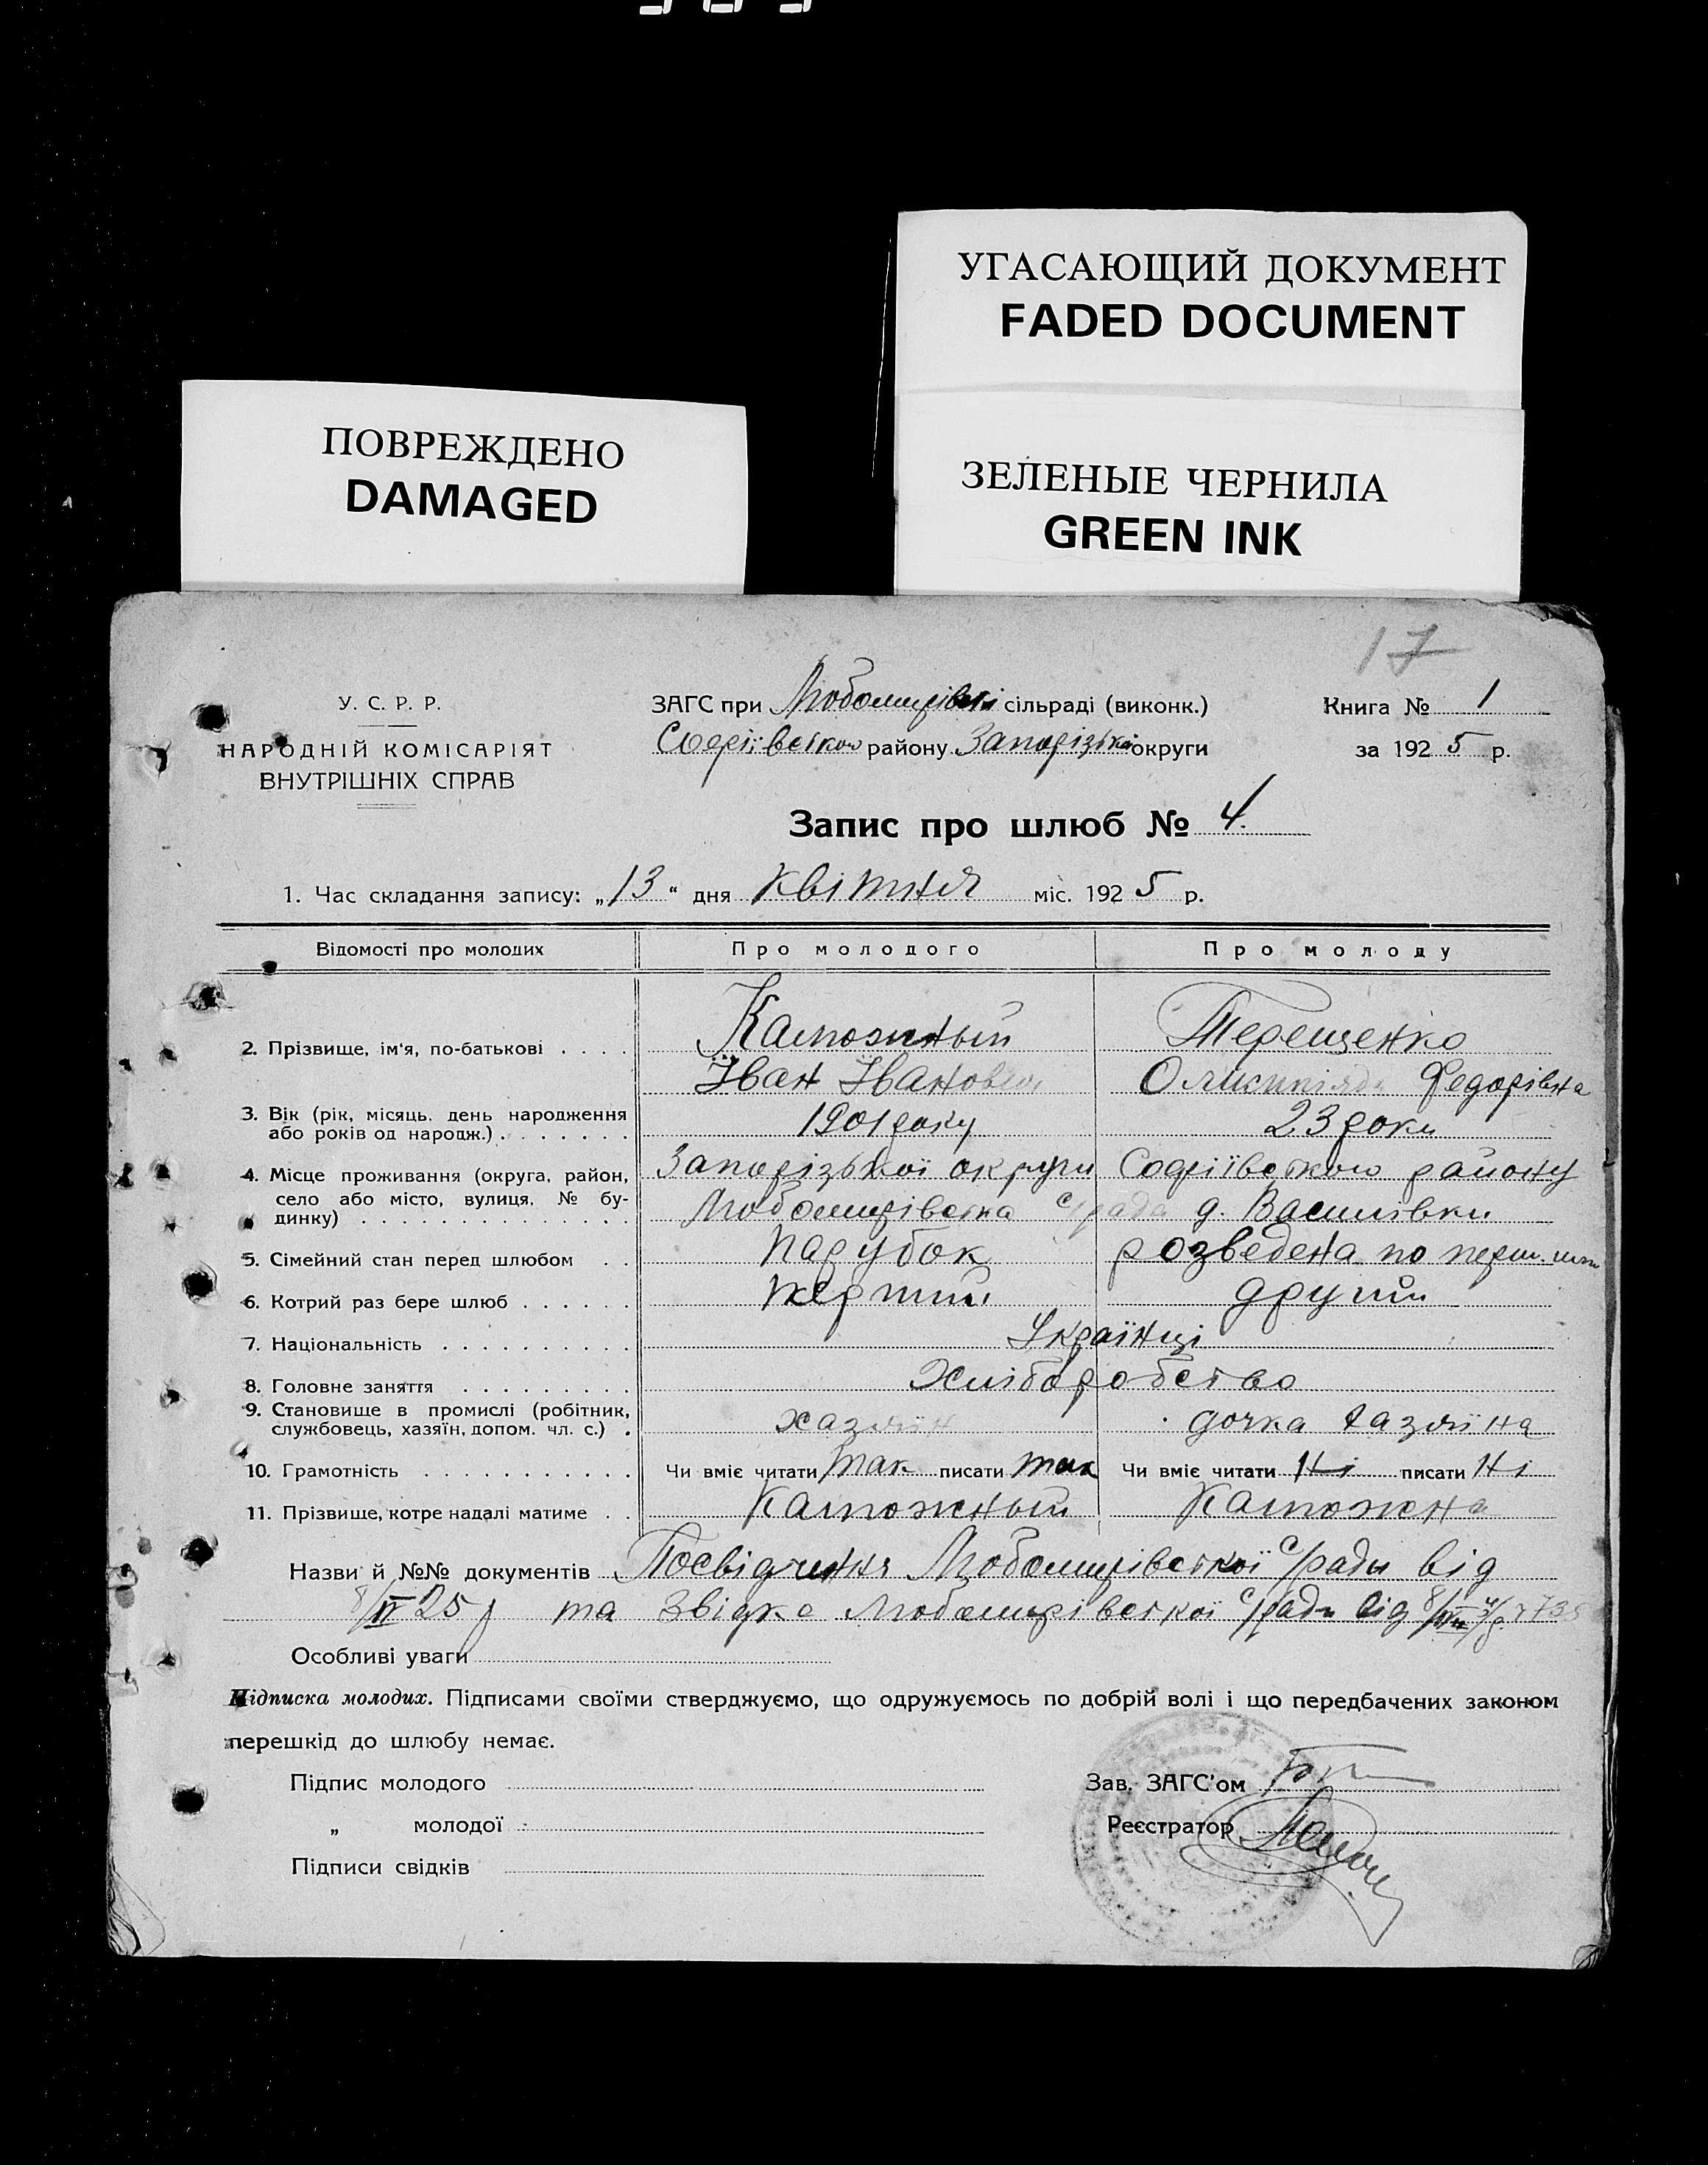 УГАСАЮЩИЙ ДОКУМЕНТ
FADED DOCUMENT
ПОВРЕЖДЕНО
DAMAGED
ЗЕЛЕНЫЕ ЧЕРНИЛА
GREEN INK
17
У. С. Р. Р.
НАРОДНІЙ КОМІСАРІЯТ
ВНУТРІШНІХ СПРАВ
ЗАГС при Любомирівській сільраді (виконк.)
Софіївського району Запорізької округи
Книга № 1
за 1925 р.
Запис про шлюб № 4.
1. Час складання запису: „13“ дня Квітня міс. 1925 р.
Відомості про молодих Про молодого Про молоду
2. Прізвище, ім'я, по-батькові . . . . Калюжный Терещенко
Їван Їванович Олимпіяда Федорівна
3. Вік (рік, місяць, день народження або років од народж.) . . . . . . . 1901 року 23 роки
4. Місце проживання (округа, район, село або місто, вулиця, № будинку) . . . . . . . . . . . . . . Запорізької округи Софіївського району
Любомирівська с/рада д. Василівки
5. Сімейний стан перед шлюбом . . парубок розведена по перш.
6. Котрий раз бере шлюб . . . . . . перший другий
7. Національність . . . . . . . . . . Українці
8. Головне заняття . . . . . . . . . Хліборобство
9. Становище в промислі (робітник, службовець, хазяїн, допом. чл. с.) . хазяїн дочка хазяїна
10. Грамотність . . . . . . . . . . . Чи вміє читати так писати так Чи вміє читати Ні писати Ні
11. Прізвище, котре надалі матиме . . Калюжный Калюжна
Назви й №№ документів Посвідчиння Любомирівської с/ради від
8/IV 25 р та Звідка Любомирівської с/ради від 8/IV
Особливі уваги
Підписка молодих. Підписами своїми стверджуємо, що одружуємось по добрій волі і що передбачених законом
перешкід до шлюбу немає.
Підпис молодого
„ молодої
Підписи свідків
Зав. ЗАГС'ом
Реєстратор